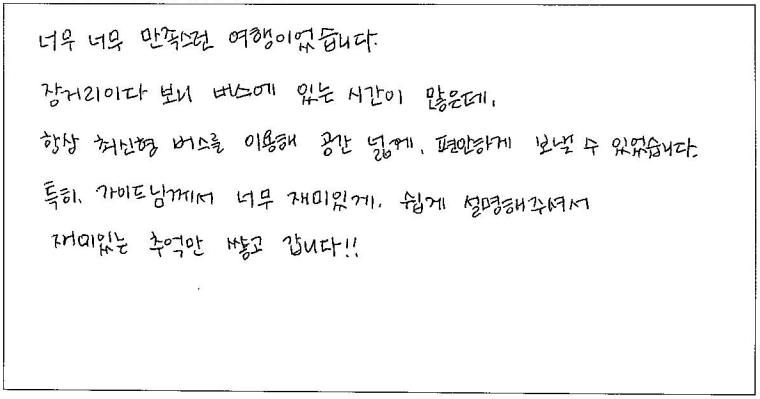 너무 너무 만족스런 여행이었습니다.
장거리이다 보니 버스에 있는 시간이 많은데,
항상 최신형 버스를 이용해 공간 넓게, 편안하게 보낼 수 있었습니다.
특히, 가이드님께서 너무 재미있게, 쉽게 설명해주셔서
재미있는 추억만 쌓고 갑니다!!